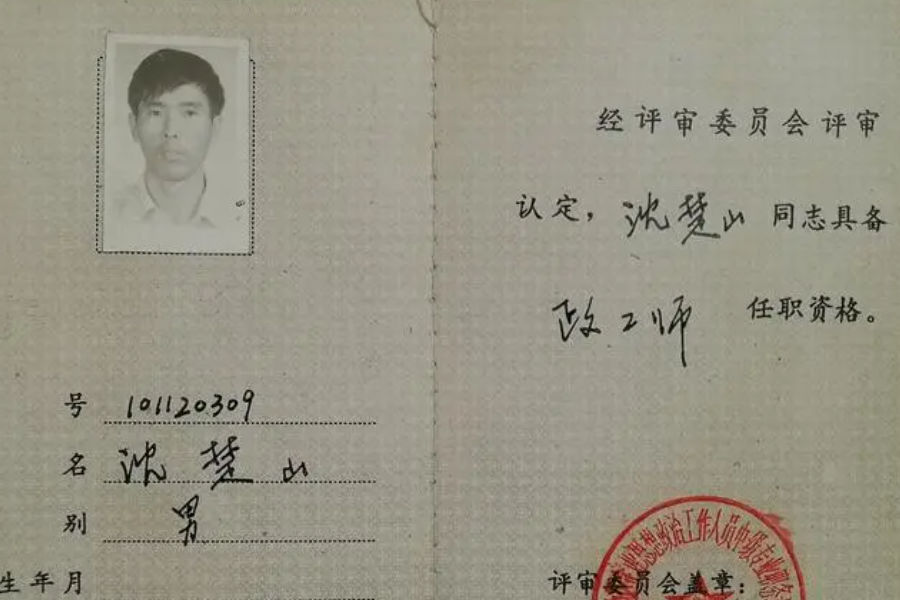 号 101120309
名 沈楚山
别 男
生年月
经评审委员会评审
认定，沈楚山 同志具备
政工师 任职资格。
评审委员会盖章：
思想政治工作人员中级专业职务